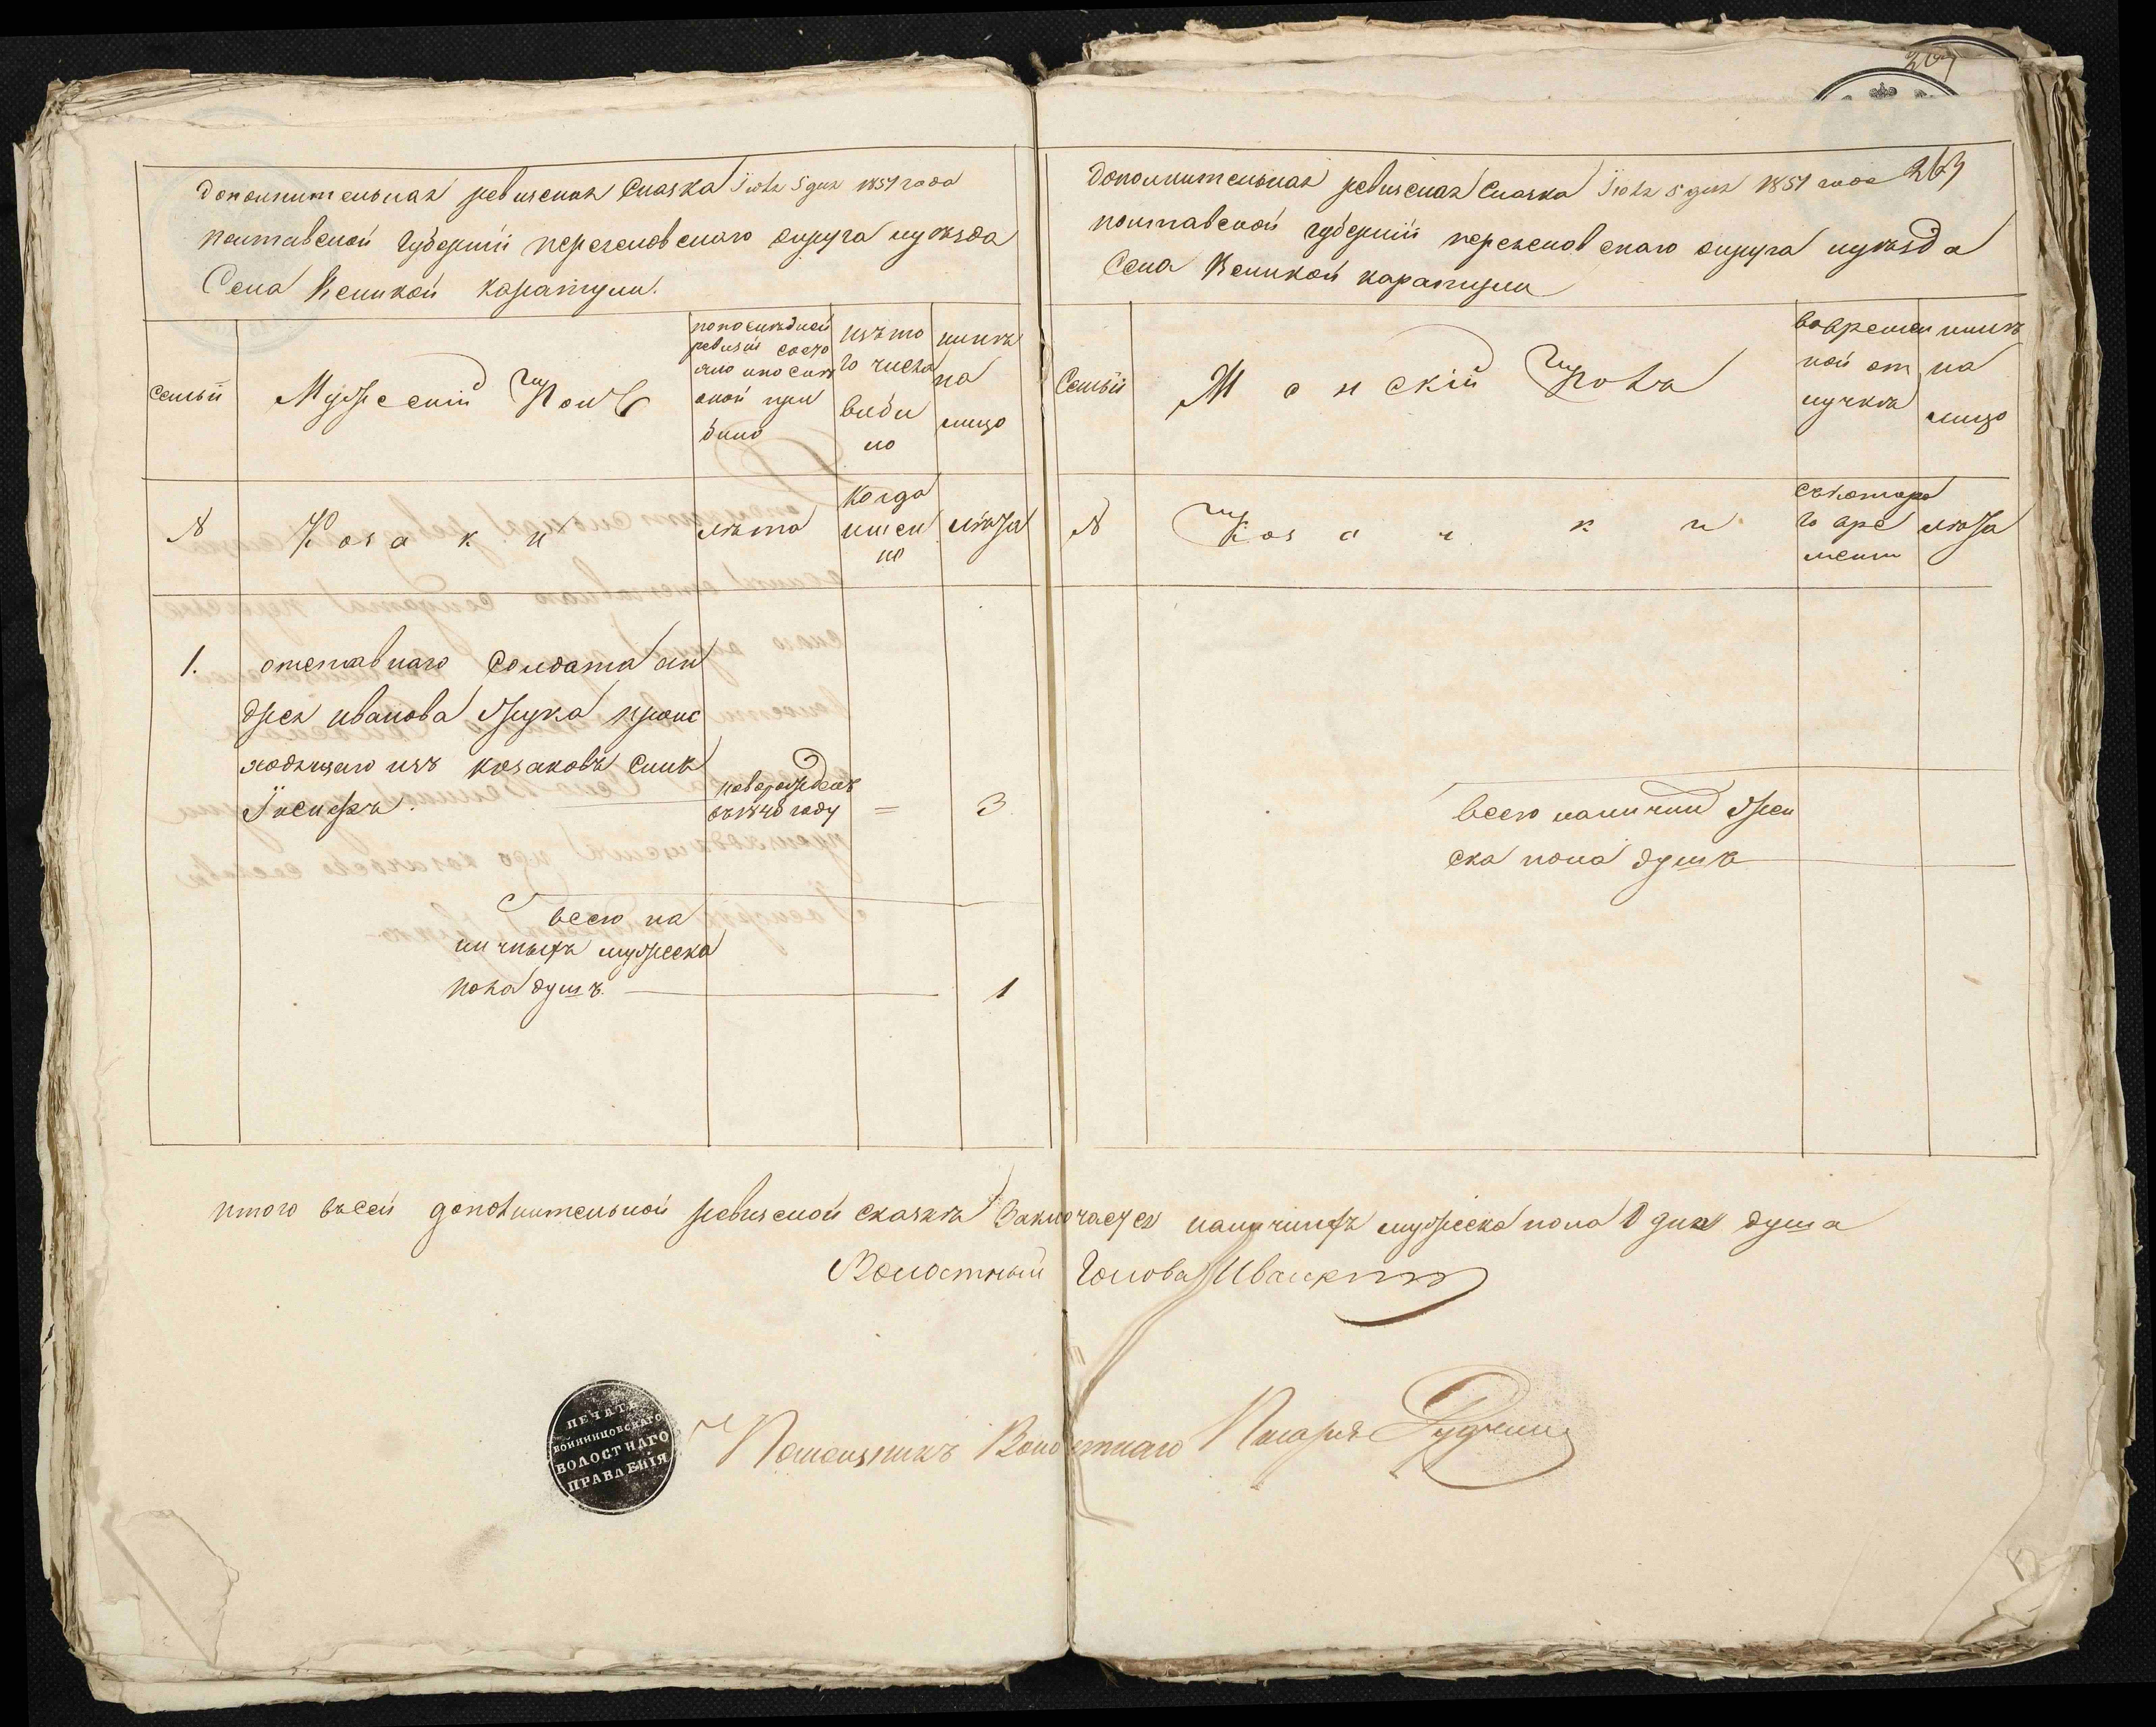 Дополнительная ревизская Сказка Іюля 5 дня 1851 года
полтавской губерніи переяславскаго округа и уѣзда
Села Великой Каратули.
семьи
Мужескій Полъ
по последней
ревизіи состо
яло и после
оной при
было
изъ то
го числа
выбы
ло
нынѣ
на
лицо
№
Козаки
лѣта
когда
имен
но
лѣта
1.
отставнаго Солдата Ан
дрея Иванова Жука проис
ходящаго изъ козаковъ сынъ
Іосифъ.
новорожденъ
въ 1848 году
=
3
всего на
личныхъ мужеска
пола душъ.
1
263
Дополнительная ревизская Сказка Іюля 5 дня 1851 года
полтавской губерніи переяславскаго округа и уѣзда
Села Великой Каратули
Семьи
Женскій Полъ
во времен
ной от
лучкѣ
нынѣ
на
лицо
№
Козачки
съ котора
го вре
мени
лѣта
всего наличных женс
ска пола душъ
итого въ сей дополнительной ревизской сказкѣ Заключается наличныхъ мужеска пола одна душа
Волостный Голова
ПЕЧАТЬ
ВОЙИНЦОВСКАГО
ВОЛОСТНАГО
ПРАВЛЕНІЯ
Помощникъ Волостнаго Писаря